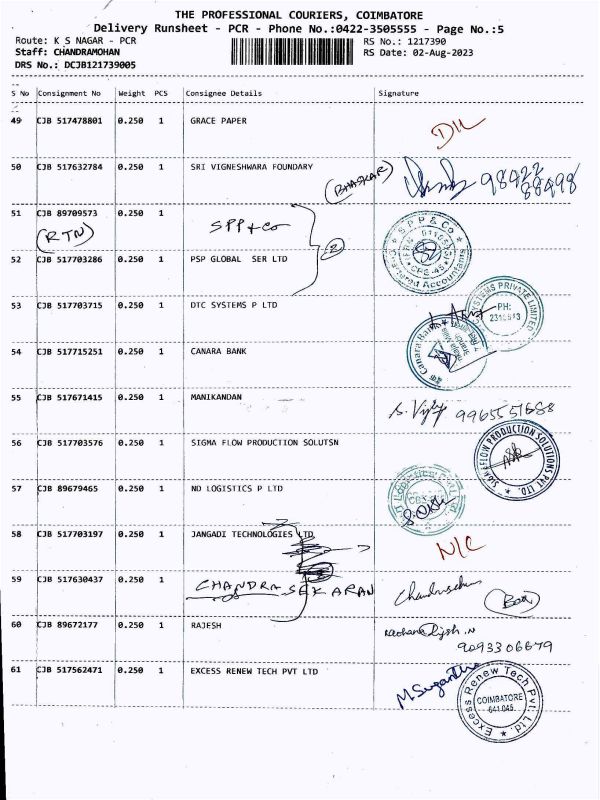 THE PROFESSIONAL COURIERS, COIMBATORE
Delivery Runsheet - PCR - Phone No.:0422-3505555 - Page No.:5
Route: K S NAGAR - PCR RS No.: 1217390
Staff: CHANDRAMOHAN RS Date: 02-Aug-2023
DRS No.: DCJB121739005
S No Consignment No Weight PCS Consignee Details Signature
49 CJB 517478801 0.250 1 GRACE PAPER
50 CJB 517632784 0.250 1 SRI VIGNESHWARA FOUNDARY
(BHASKAR) 98422
88498
51 CJB 89709573 0.250 1
(RTN) SPP & Co 2
SPP & Co
Chartered Accountants
52 CJB 517703286 0.250 1 PSP GLOBAL SER LTD
53 CJB 517703715 0.250 1 DTC SYSTEMS P LTD
SYSTEMS PRIVATE LIMITED
PH:
54 CJB 517715251 0.250 1 CANARA BANK
Canara Bank
55 CJB 517671415 0.250 1 MANIKANDAN
9965551688
56 CJB 517703576 0.250 1 SIGMA FLOW PRODUCTION SOLUTSN
SIGMAFLOW PRODUCTION SOLUTIONS PVT LTD.
57 CJB 89679465 0.250 1 ND LOGISTICS P LTD
58 CJB 517703197 0.250 1 JANGADI TECHNOLOGIES LTD
N/C
59 CJB 517630437 0.250 1
CHANDRA SEKARAN
60 CJB 89672177 0.250 1 RAJESH
9093306679
61 CJB 517562471 0.250 1 EXCESS RENEW TECH PVT LTD
M. Sugantha
Excess Renew Tech Pvt. Ltd.
COIMBATORE
641 045.